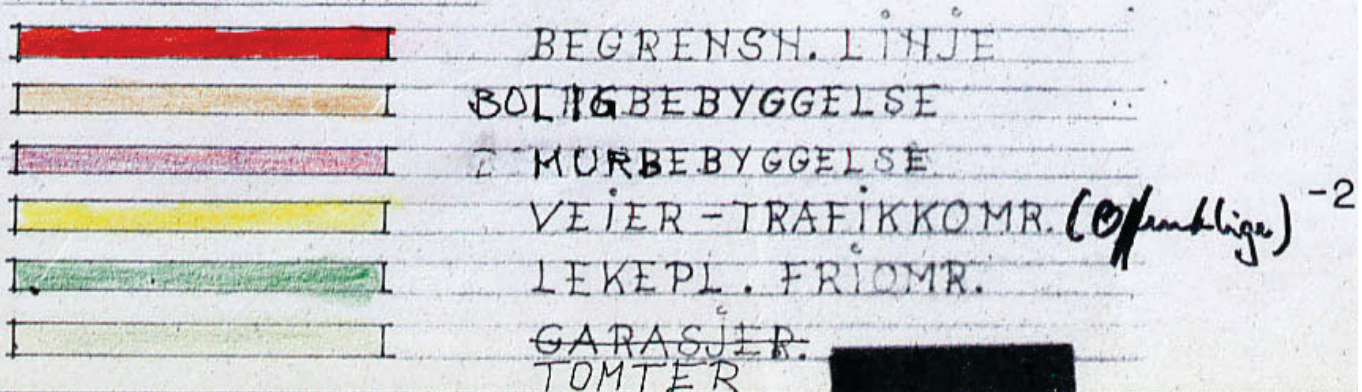 BEGRENSN. LINJE
BOLIGBEBYGGELSE
MURBEBYGGELSE
VEIER - TRAFIKKOMR. (Offentlige) -2
LEKEPL. FRIOMR.
GARASJER.
TOMTER